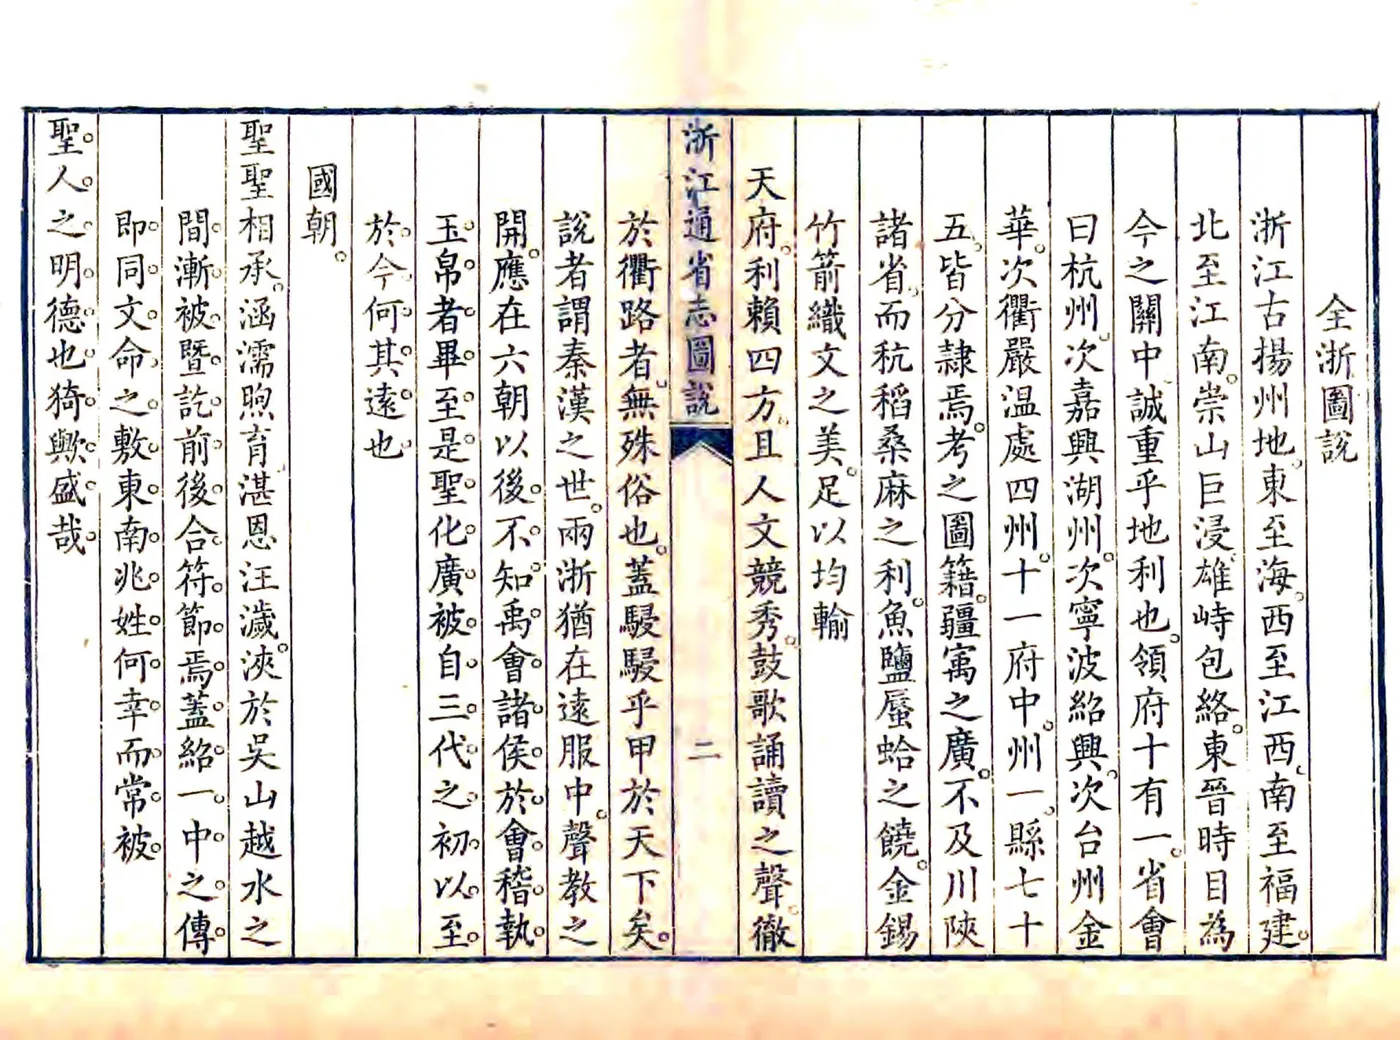 全浙圖說
浙江古揚州地東至海。西至江西。南至福建。
北至江南。崇山巨浸。雄峙包絡。東晉時目為
今之關中。誠重乎地利也。領府十有一。省會
曰杭州。次嘉興湖州。次寧波紹興。次台州金
華。次衢嚴温處四州。十一府中。州一。縣七十
五。皆分隷焉。考之圖籍。疆㝢之廣。不及川陝
諸省。而秔稻桑麻之利。魚鹽蜃蛤之饒。金錫
竹箭織文之美。足以均輸
天府。利賴四方。且人文競秀。鼓歌誦讀之聲。徹
浙江通省志圖說
二
於衢路者。無殊俗也。蓋駸駸乎甲於天下矣。
說者謂秦漢之世。兩浙猶在遠服中。聲教之
開。應在六朝以後。不知禹會諸侯於會稽。執
玉帛者畢至。是聖化廣被。自三代之初。以至
於今。何其遠也
國朝。
聖聖相承。涵濡煦育。湛恩汪濊。浹於吳山越水之
間。漸被曁訖。前後合符節焉。蓋紹一中之傳。
即同文命之敷。東南兆姓。何幸而常被。
聖人之明德也。猗歟盛哉。